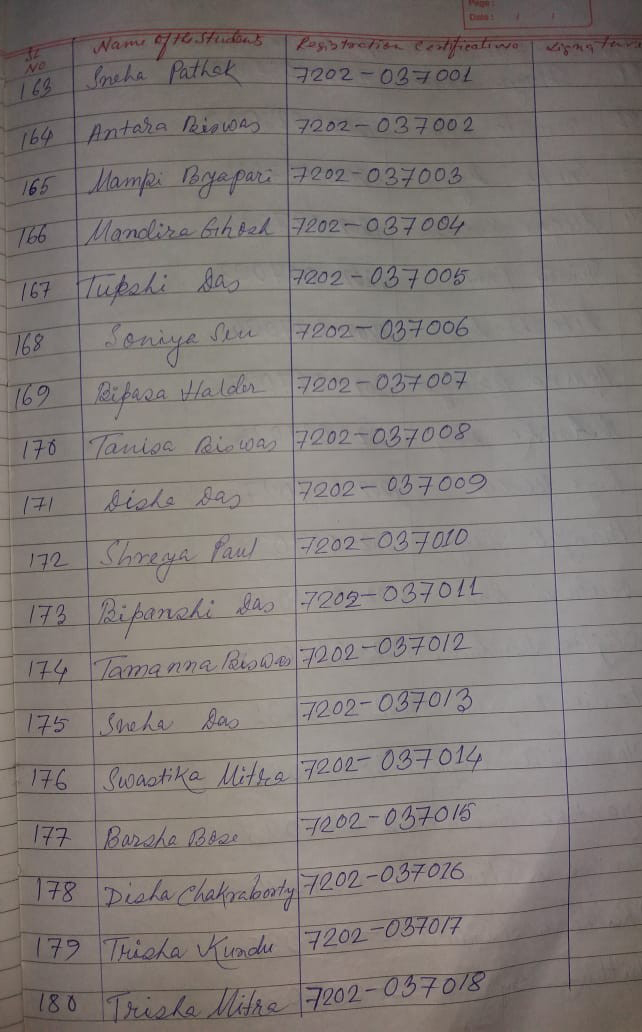 Page:
Date: / /
SL NO Name of the Students Registration Certificate No Signature
163 Sneha Pathak 7202-037001
164 Antara Biswas 7202-037002
165 Mampi Byapari 7202-037003
166 Mandira Ghosh 7202-037004
167 Tupshi Das 7202-037005
168 Soniya Sen 7202-037006
169 Bipasa Halder 7202-037007
170 Tanisa Biswas 7202-037008
171 Disha Das 7202-037009
172 Shreya Paul 7202-037010
173 Bipanshi Das 7202-037011
174 Tamanna Biswas 7202-037012
175 Sneha Das 7202-037013
176 Swastika Mitra 7202-037014
177 Barsha Bose 7202-037015
178 Disha Chakraborty 7202-037016
179 Trisha Kundu 7202-037017
180 Trisha Mitra 7202-037018